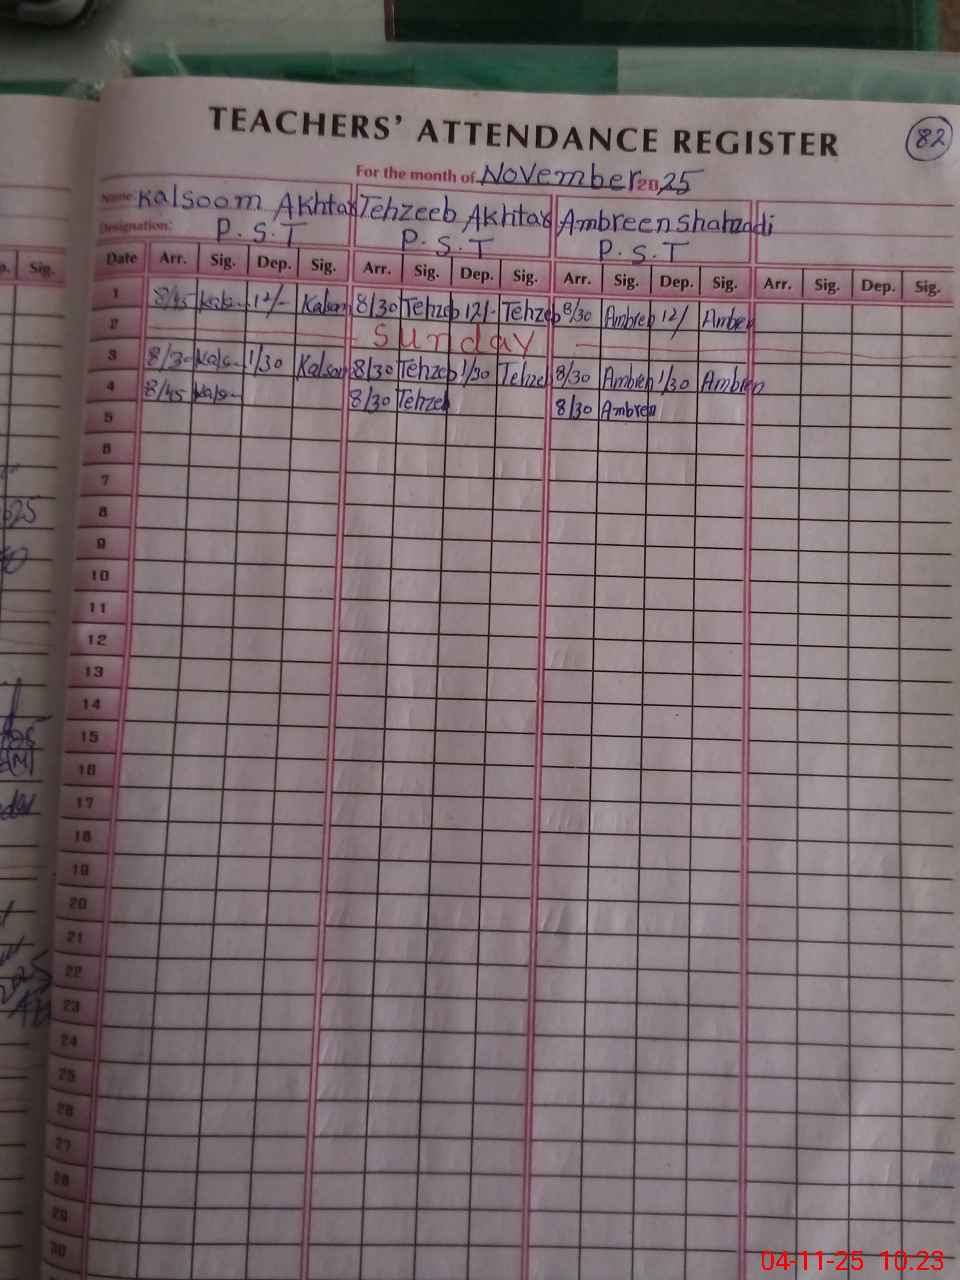 TEACHERS' ATTENDANCE REGISTER 82
For the month of November 2025
Name: Kalsoom Akhtar Tehzeeb Akhtar Ambreen Shahzadi
Designation: P.S.T P.S.T P.S.T
Date Arr. Sig. Dep. Sig. Arr. Sig. Dep. Sig. Arr. Sig. Dep. Sig. Arr. Sig. Dep. Sig.
Sig.
1 8/45 Kals 12/- Kalsom 8/30 Tehzeb 12/- Tehzeb 8/30 Ambren 12/ Ambren
2 Sunday
3 8/30 Kals 1/30 Kalsom 8/30 Tehzeb 1/30 Tehzeb 8/30 Ambren 1/30 Ambren
4 8/45 Kals 8/30 Tehzeb 8/30 Ambren
5
6
7
8
9
10
11
12
13
14
15
16
17
18
19
20
21
22
23
24
25
26
27
28
29
30
04-11-25 10:23